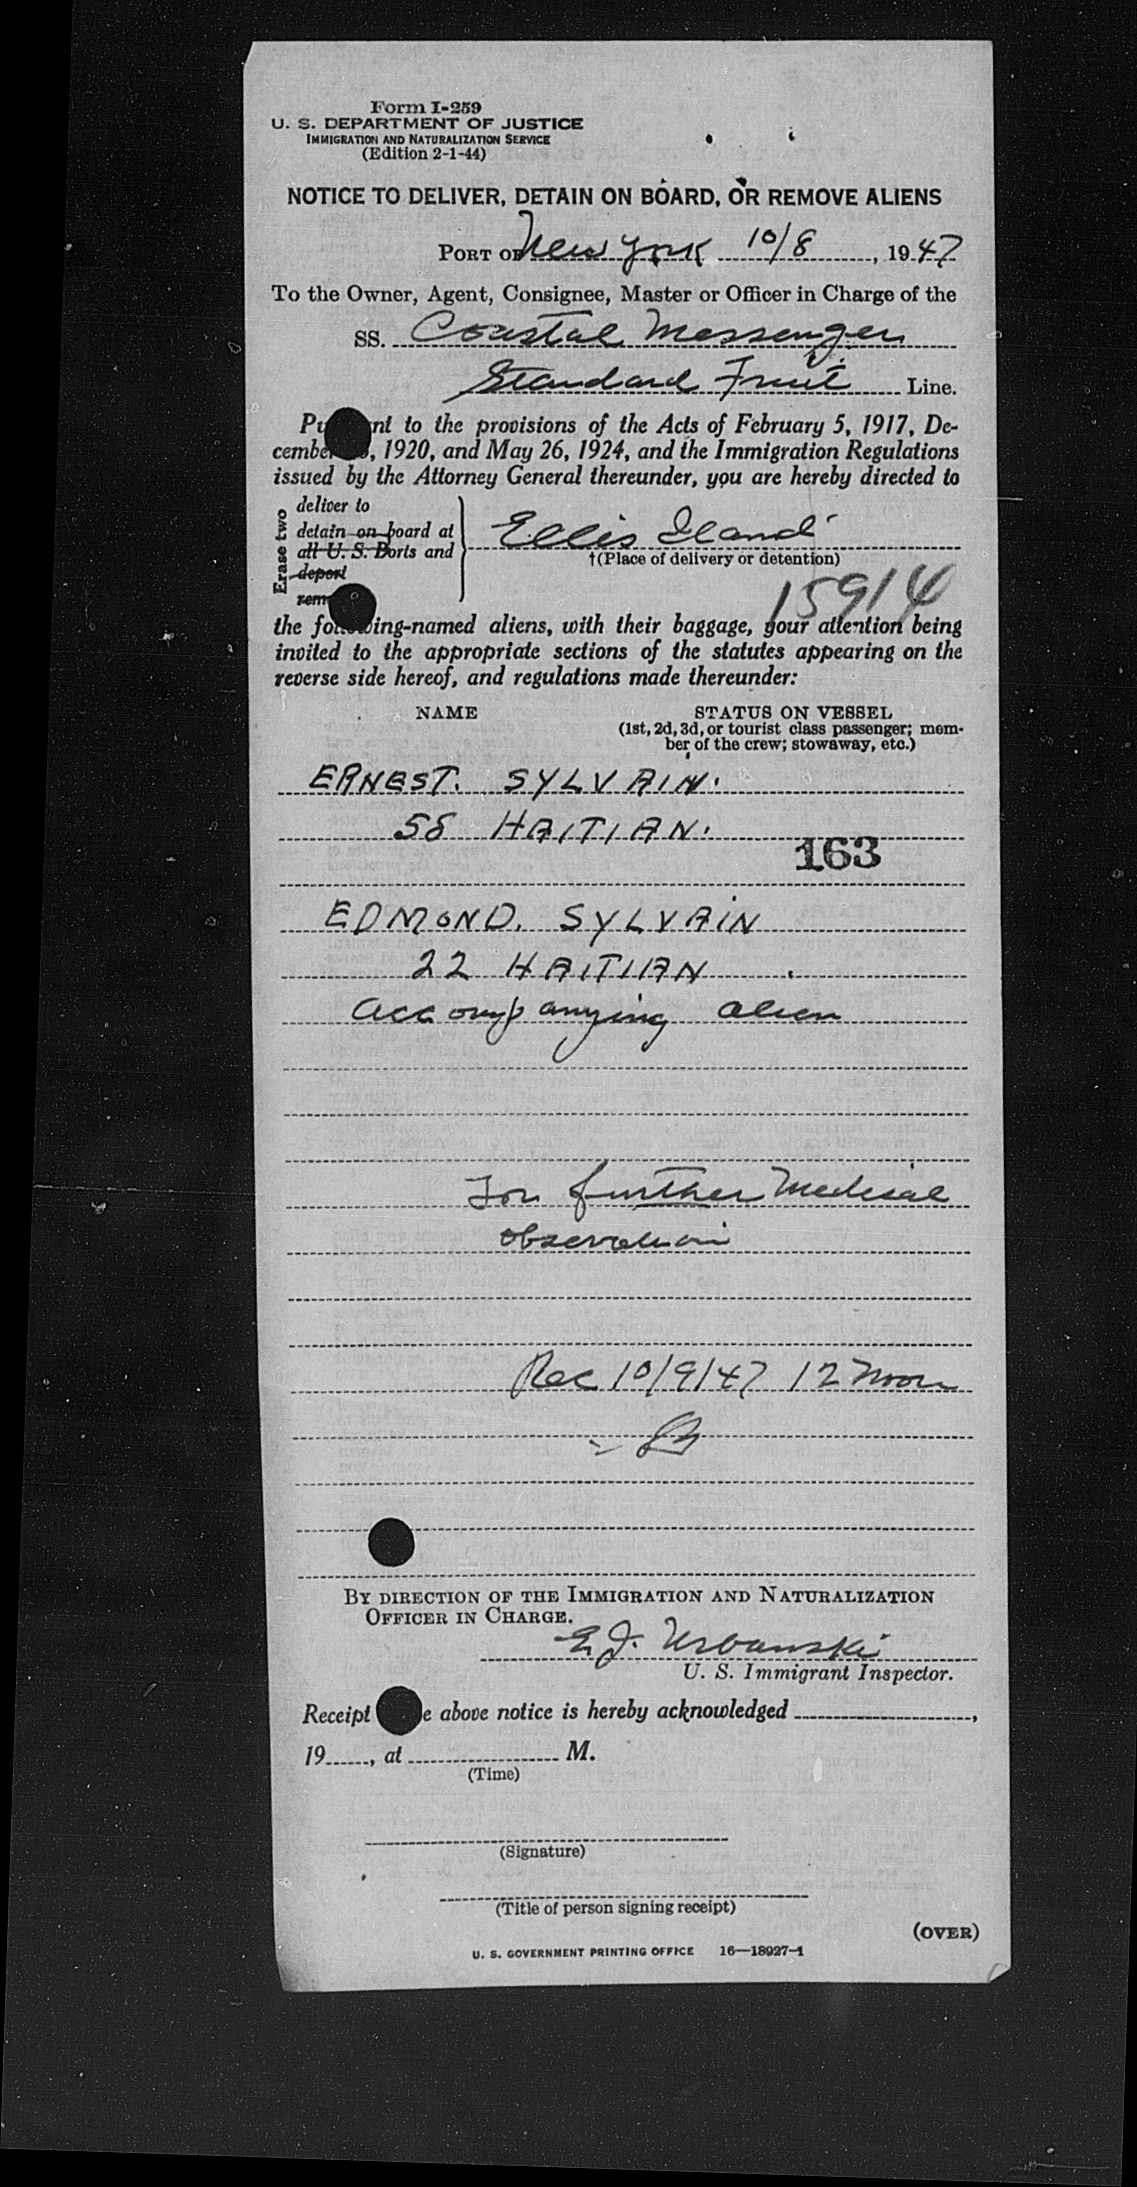 Form I-259
U. S. DEPARTMENT OF JUSTICE
IMMIGRATION AND NATURALIZATION SERVICE
(Edition 2-1-44)
NOTICE TO DELIVER, DETAIN ON BOARD, OR REMOVE ALIENS
PORT OF New York 10/8, 1947
To the Owner, Agent, Consignee, Master or Officer in Charge of the
SS. Coastal Messenger
Standard Fruit Line.
Pu nt to the provisions of the Acts of February 5, 1917, De-
cembe , 1920, and May 26, 1924, and the Immigration Regulations
issued by the Attorney General thereunder, you are hereby directed to
Erase two
deliver to
detain on board at
all U. S. Ports and
deport
rem
Ellis Iland
†(Place of delivery or detention)
15914
the fo ing-named aliens, with their baggage, your attention being
invited to the appropriate sections of the statutes appearing on the
reverse side hereof, and regulations made thereunder:
NAME STATUS ON VESSEL
(1st, 2d, 3d, or tourist class passenger; mem-
ber of the crew; stowaway, etc.)
ERNEST. SYLVAIN.
58 HAITIAN.
163
EDMOND. SYLVAIN
22 HAITIAN
accompanying alien
For further Medical
observation
Rec 10/9/47 12 Noon
BY DIRECTION OF THE IMMIGRATION AND NATURALIZATION
OFFICER IN CHARGE.
E. J. Urbanski
U. S. Immigrant Inspector.
Receipt e above notice is hereby acknowledged ,
19 , at M.
(Time)
(Signature)
(Title of person signing receipt)
(OVER)
U. S. GOVERNMENT PRINTING OFFICE 16—18927-1